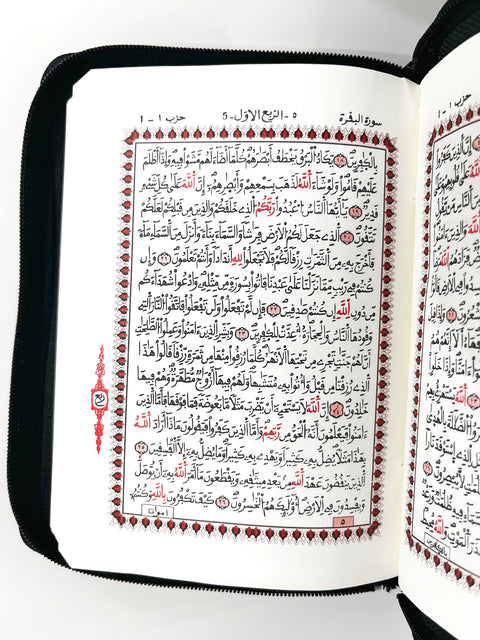 سورة البقرة ٥ - الربع الأول - 5 حزب ١ - 1
بالكفرين ١٨ يكاد البرق يخطف أبصرهم كلما أضاء لهم مشوا فيه وإذا أظلم
عليهم قاموا ولو شاء الله لذهب بسمعهم وأبصرهم إن الله على كل شيء
قدير ١٩ يأيها الناس اعبدوا ربكم الذي خلقكم والذين من قبلكم لعلكم
تتقون ٢٠ الذي جعل لكم الأرض فرشا والسماء بناء وأنزل من السماء ماء
فأخرج به من الثمرت رزقا لكم فلا تجعلوا لله أندادا وأنتم تعلمون ٢١ وإن
كنتم في ريب مما نزلنا على عبدنا فاتوا بسورة من مثله وادعوا شهداءكم
من دون الله إن كنتم صدقين ٢٢ فإن لم تفعلوا ولن تفعلوا فاتقوا النار التي
وقودها الناس والحجارة أعدت للكفرين ٢٣ وبشر الذين ءامنوا وعملوا الصلحت
أن لهم جنت تجري من تحتها الأنهر كلما رزقوا منها من ثمرة رزقا قالوا هذا
الذي رزقنا من قبل وأتوا به متشبها ولهم فيها أزوج مطهرة وهم فيها
خلدون ٢٤ إن الله لا يستحي أن يضرب مثلا ما بعوضة فما فوقها فأما الذين
ءامنوا فيعلمون أنه الحق من ربهم وأما الذين كفروا فيقولون ماذا أراد الله
بهذا مثلا يضل به كثيرا ويهدي به كثيرا وما يضل به إلا الفسقين ٢٥
الذين ينقضون عهد الله من بعد ميثقه ويقطعون ما أمر الله به أن يوصل
ويفسدون في الأرض أولئك هم الخسرون ٢٦ كيف تكفرون بالله وكنتم
٥ أمواتا
ربع
حزب ١ - 1